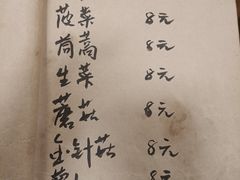 菠菜 8元
茼蒿 8元
生菜 8元
蘑菇 8元
金針菇 8元
8元